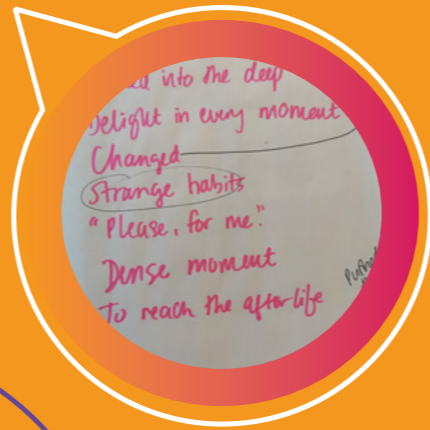 into the deep
Delight in every moment
Changed
Strange habits
"Please, for me."
Dense moment
To reach the afterlife